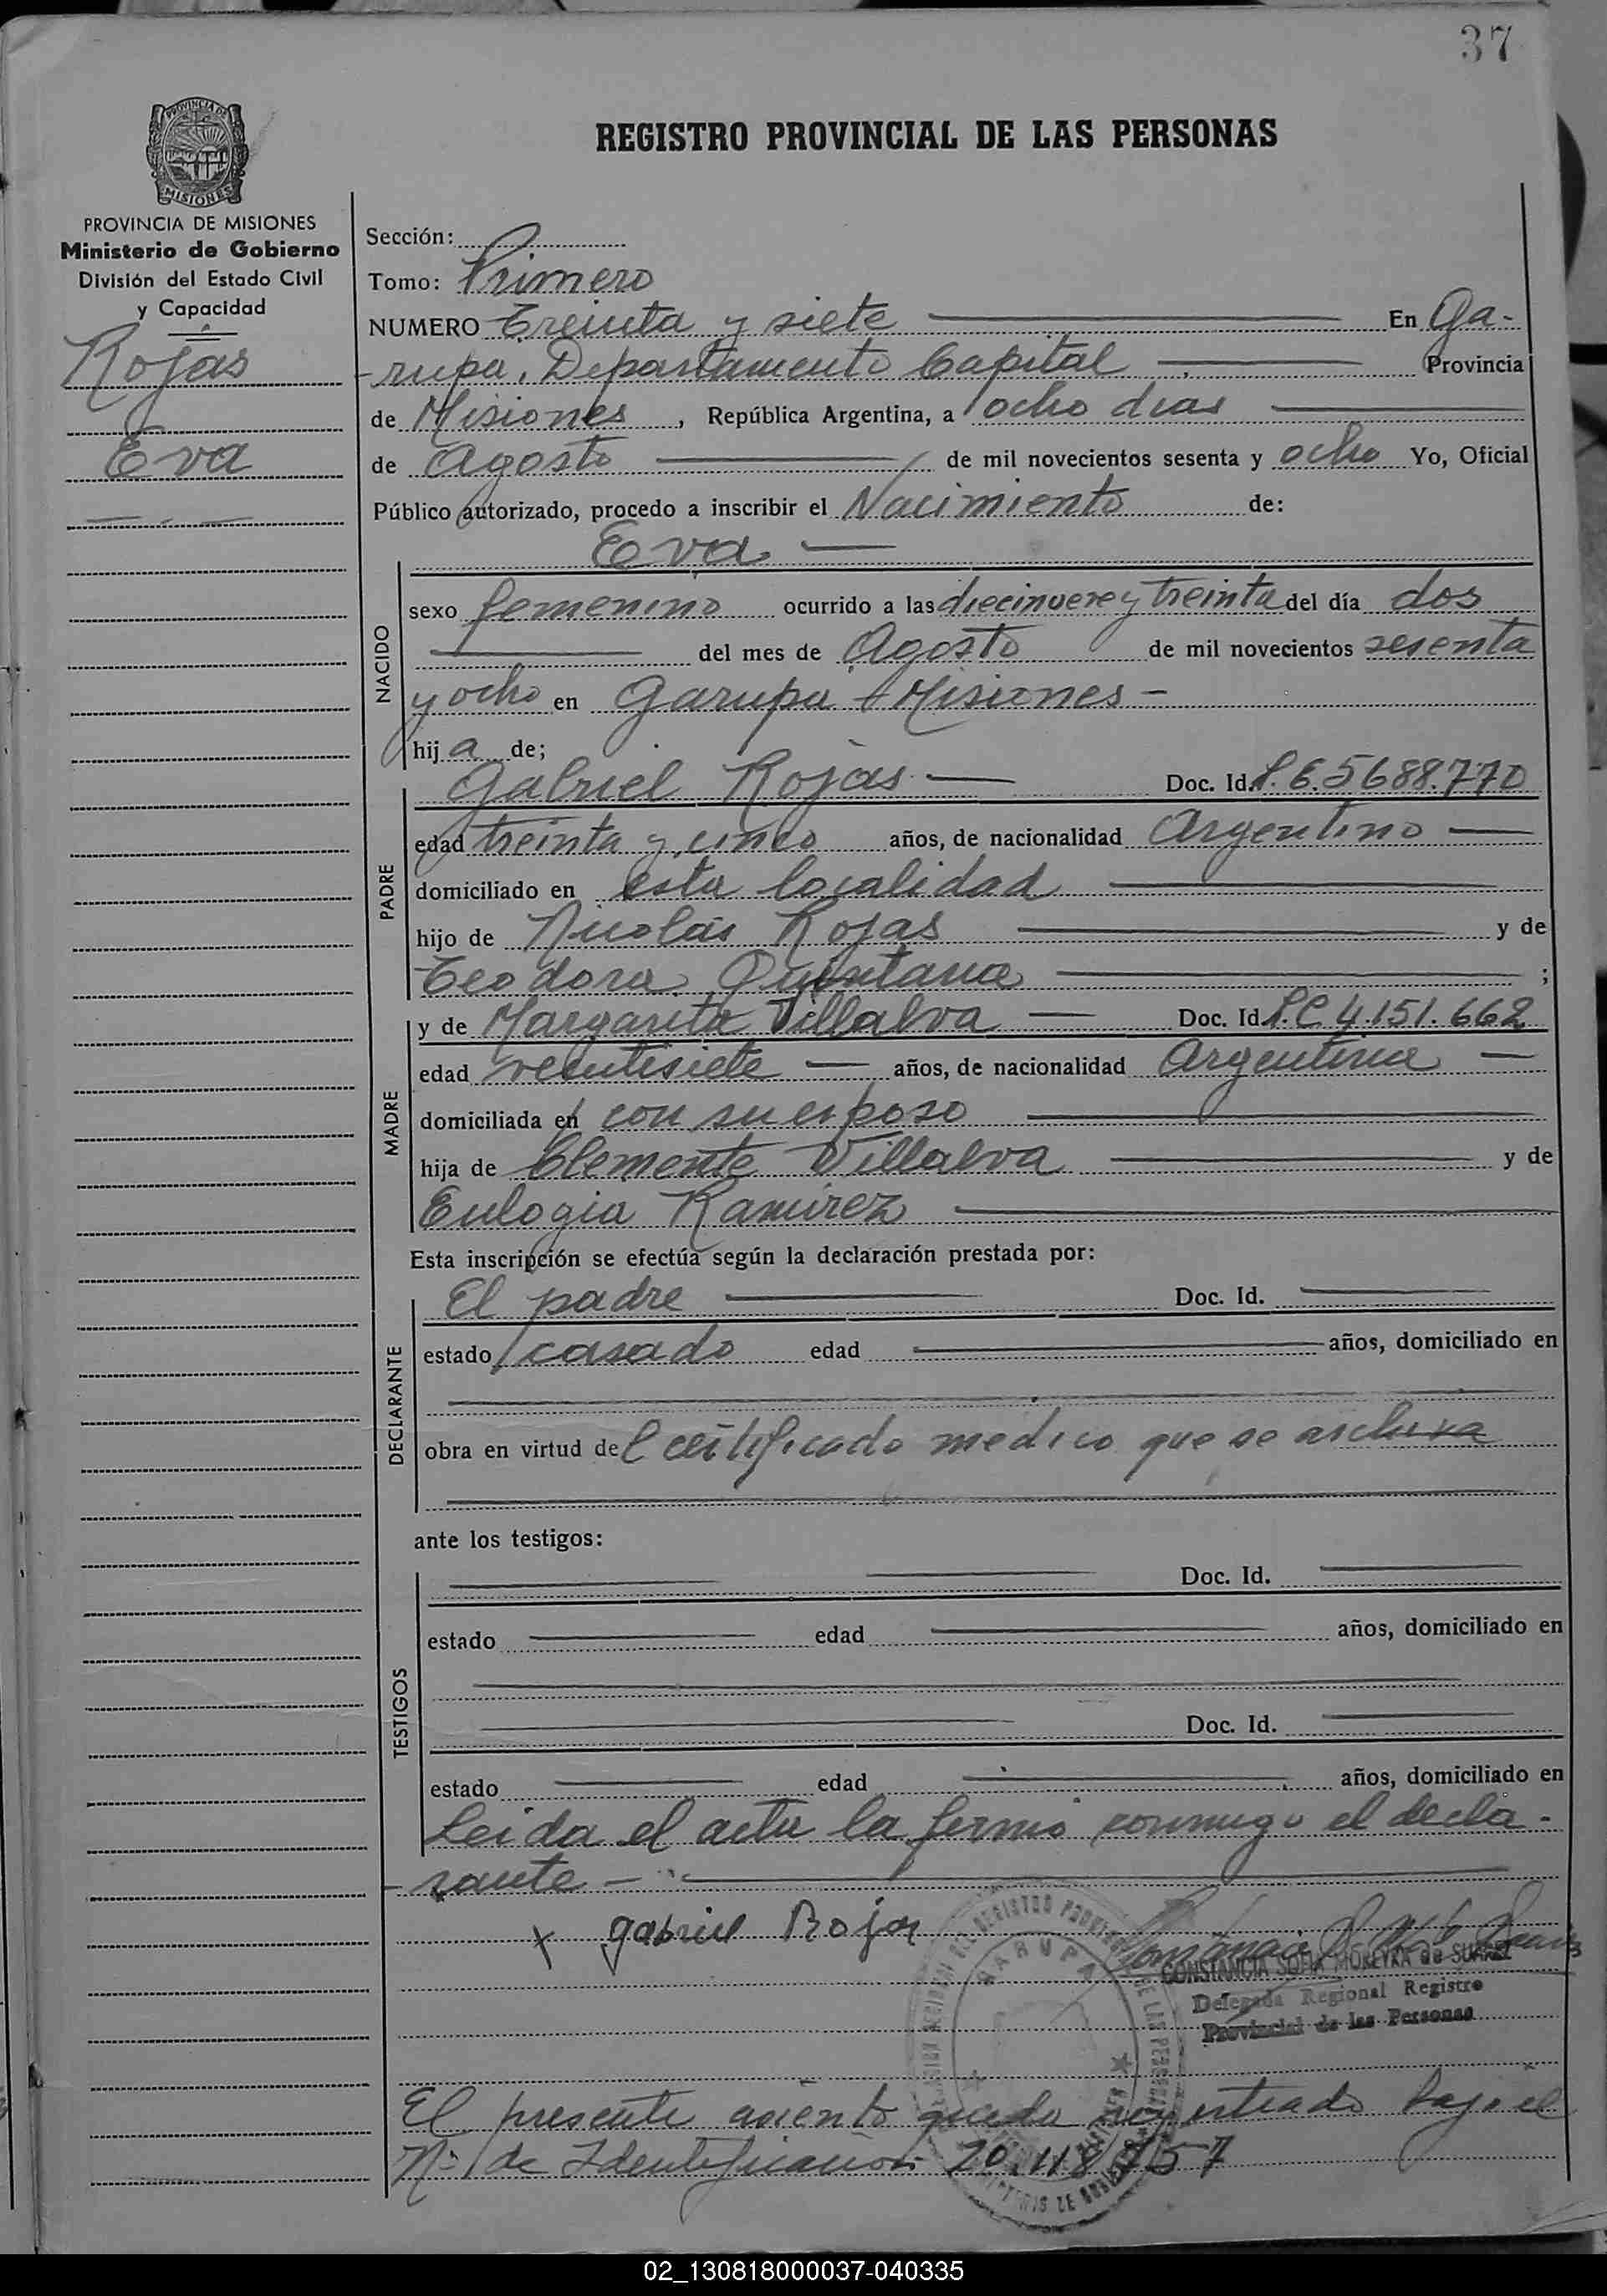 37
REGISTRO PROVINCIAL DE LAS PERSONAS
PROVINCIA DE MISIONES
PROVINCIA DE MISIONES
Ministerio de Gobierno
División del Estado Civil
y Capacidad
Rojas
Eva
Sección:
Tomo: Primero
NUMERO Treinta y siete En Ga-
rupa, Departamento Capital Provincia
de Misiones, República Argentina, a ocho dias
de Agosto de mil novecientos sesenta y ocho Yo, Oficial
Público autorizado, procedo a inscribir el Nacimiento de:
Eva
NACIDO
sexo femenino ocurrido a las diecinueve y treinta del día dos
del mes de Agosto de mil novecientos sesenta
y ocho en Garupa Misiones -
hija de;
Gabriel Rojas Doc. Id. 5688.770
PADRE
edad treinta y cinco años, de nacionalidad Argentino
domiciliado en esta localidad
hijo de Nicolás Rojas y de
Teodora Quintana ;
y de Margarita Villalva Doc. Id. L.C 4.151.662
MADRE
edad veintisiete años, de nacionalidad Argentina
domiciliada en con su esposo
hija de Clemente Villalva y de
Eulogia Ramirez
Esta inscripción se efectúa según la declaración prestada por:
El padre Doc. Id.
DECLARANTE
estado casado edad años, domiciliado en
obra en virtud del certificado medico que se archiva
ante los testigos:
Doc. Id.
TESTIGOS
estado edad años, domiciliado en
Doc. Id.
estado edad años, domiciliado en
Leida el acta la firmó conmigo el decla-
rante -
x gabriel Rojas
GARUPA
CONSTANCIA SOFIA MOREYRA de SUAREZ
Delegada Regional Registro
Provincial de las Personas
El presente asiento queda registrado bajo el
Nº de Identificación 20.118.157
02_130818000037-040335